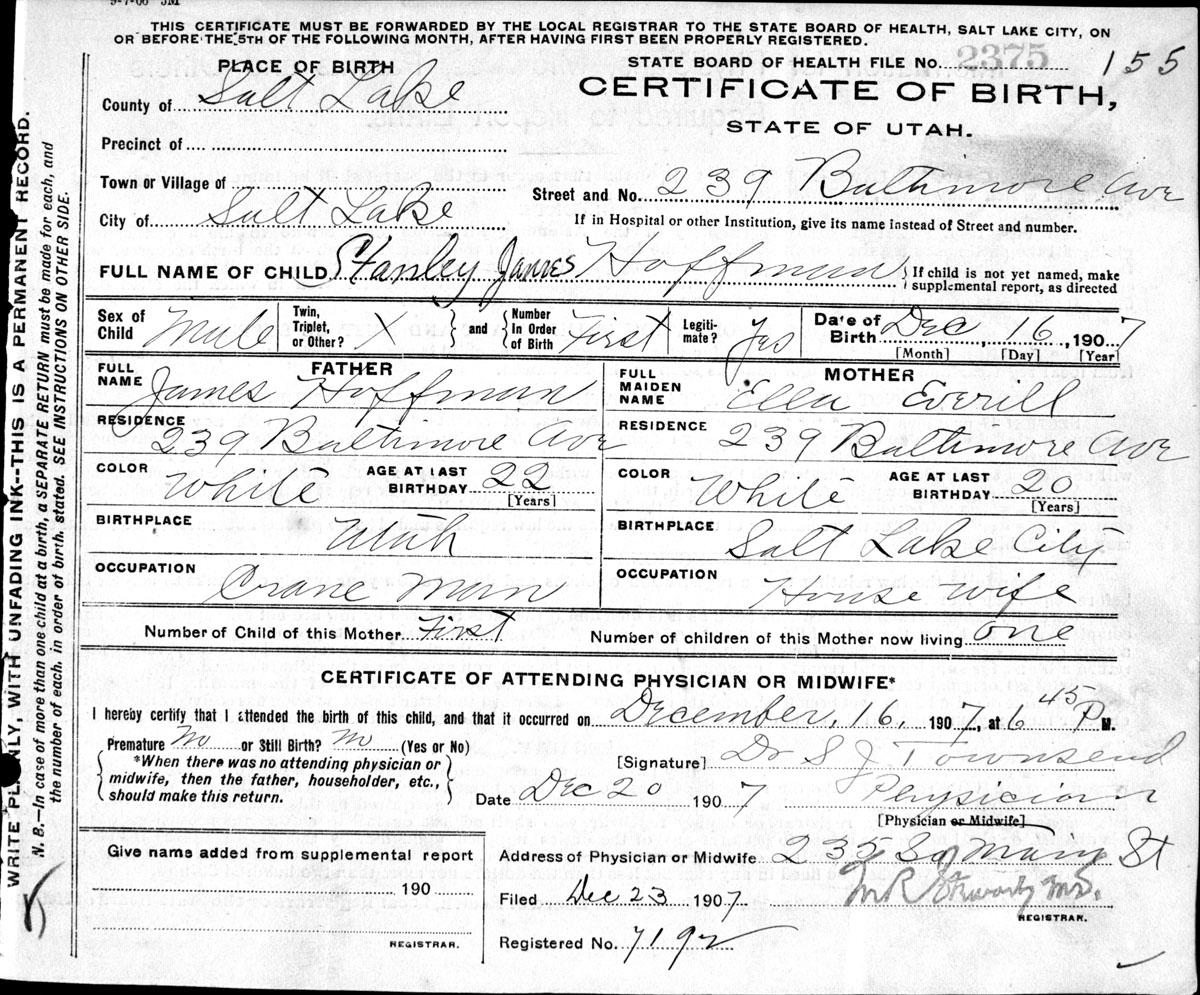 9-7-06 5M
THIS CERTIFICATE MUST BE FORWARDED BY THE LOCAL REGISTRAR TO THE STATE BOARD OF HEALTH, SALT LAKE CITY, ON
OR BEFORE THE 5TH OF THE FOLLOWING MONTH, AFTER HAVING FIRST BEEN PROPERLY REGISTERED.
STATE BOARD OF HEALTH FILE No. 2375 155
PLACE OF BIRTH
CERTIFICATE OF BIRTH,
County of Salt Lake
STATE OF UTAH.
Precinct of
Town or Village of
Street and No. 239 Baltimore Ave
City of Salt Lake
If in Hospital or other Institution, give its name instead of Street and number.
FULL NAME OF CHILD Stanley James Hoffman
If child is not yet named, make
supplemental report, as directed
Sex of Child Male
Twin, Triplet, or Other? X
and Number In Order of Birth First
Legiti-mate? Yes
Date of Birth Dec 16, 1907
[Month] [Day] [Year]
FATHER
FULL NAME James Hoffman
RESIDENCE 239 Baltimore Ave
COLOR White AGE AT LAST BIRTHDAY 22
[Years]
BIRTHPLACE Utah
OCCUPATION Crane Man
MOTHER
FULL MAIDEN NAME Ella Everill
RESIDENCE 239 Baltimore Ave
COLOR White AGE AT LAST BIRTHDAY 20
[Years]
BIRTHPLACE Salt Lake City
OCCUPATION House Wife
Number of Child of this Mother First Number of children of this Mother now living one
CERTIFICATE OF ATTENDING PHYSICIAN OR MIDWIFE*
I hereby certify that I attended the birth of this child, and that it occurred on December, 16, 1907, at 6 45 P M.
Premature No or Still Birth? No (Yes or No)
*When there was no attending physician or
midwife, then the father, householder, etc.,
should make this return.
[Signature] Dr S J. Townsend
Date Dec 20 1907 Physician
[Physician or Midwife]
Give name added from supplemental report
190
REGISTRAR.
Address of Physician or Midwife 235 So Main St
Filed Dec 23 1907
REGISTRAR.
Registered No. 7192
WRITE PLAINLY, WITH UNFADING INK--THIS IS A PERMANENT RECORD.
N. B.—In case of more than one child at a birth, a SEPARATE RETURN must be made for each, and
the number of each, in order of birth, stated. SEE INSTRUCTIONS ON OTHER SIDE.